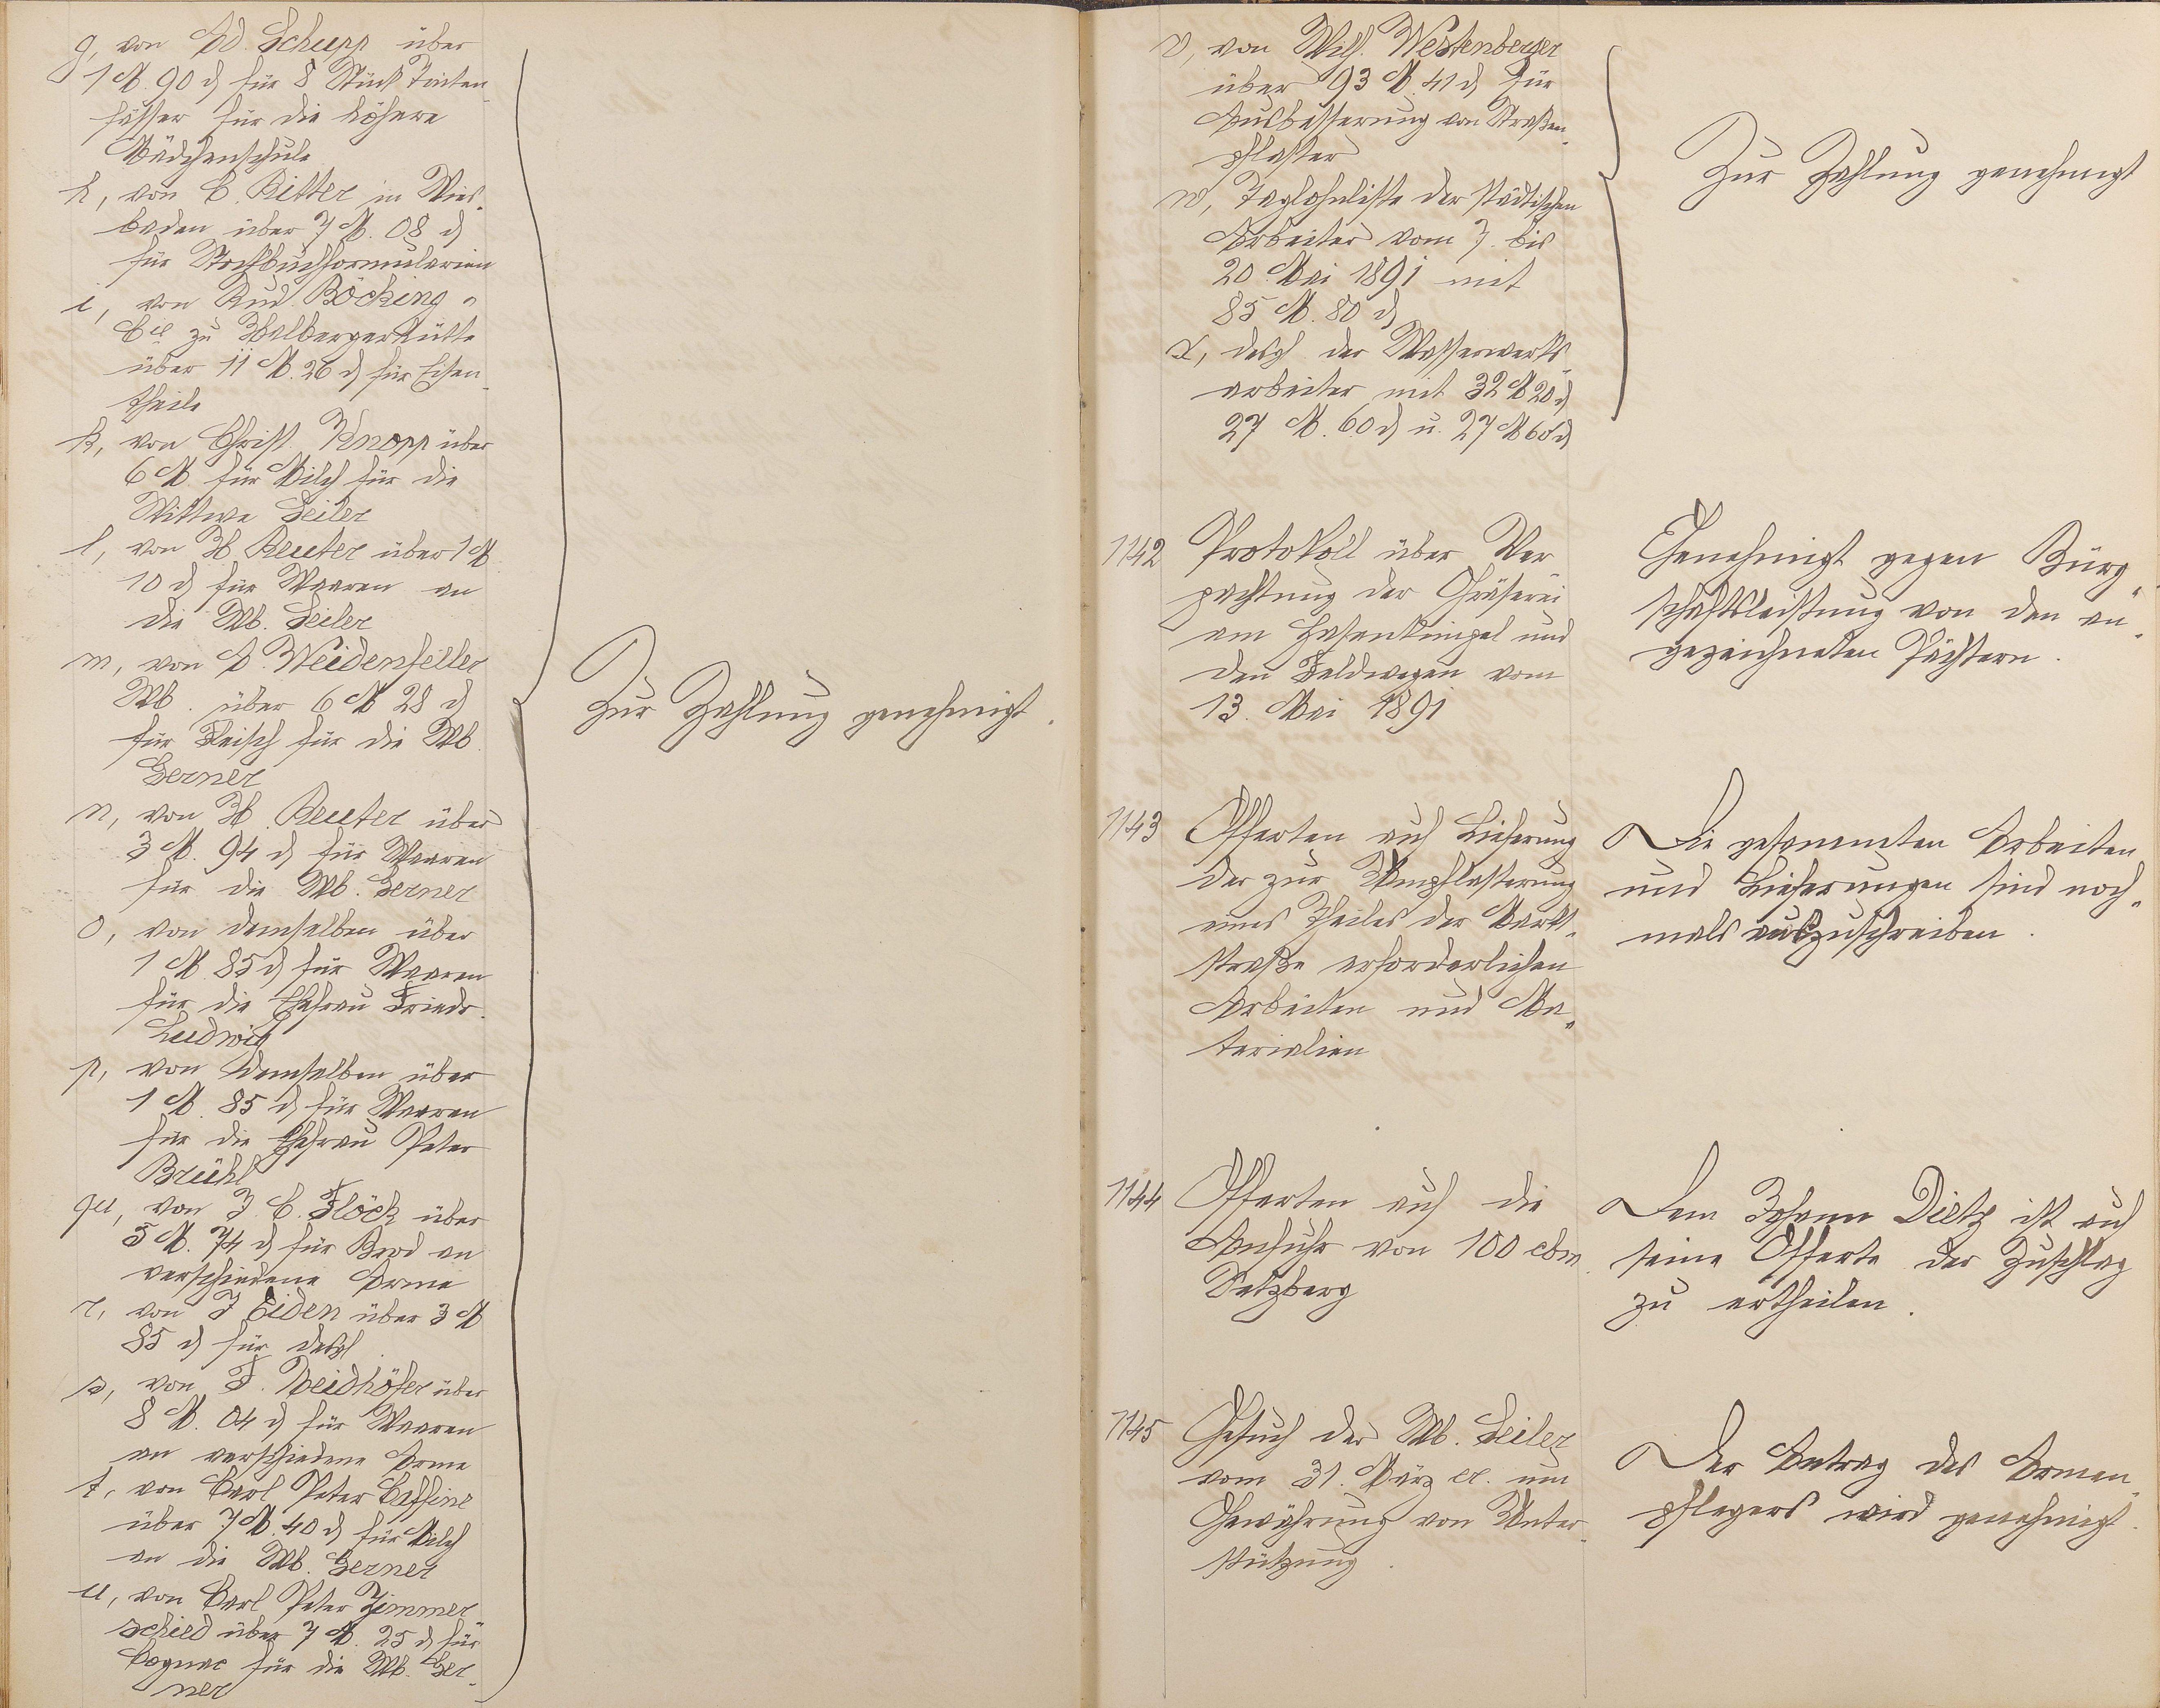 g, von Ad. Schupp über
1 M. 90 d für 8 Stück Tinten-
fässer für die höhere
Mädchenschule
h, von C. Ritter in Wies-
baden über 7 M. 08 d
für Stockbuchformularien
i, von Rud. Böcking &
Cie zu Halbergerhütte
über 11 M. 26 d für Eisen-
theile
k, von Christ. Knopp über
6 M für Milch für die
Wittwe Seiler
l, von H. Reuter über 1 M
10 d für Waaren an
die Wb. Seiler
m, von A. Weidenfeller
Wb. über 6 M 28 d
für Fleisch für die Wb.
Gerner
n, von H. Reuter über
3 M. 94 d für Waaren
für die Wb. Gerner
o, von demselben über
1 M 85 d für Waaren
für die Ehefrau Friedr.
Ludwig
p, von demselben über
1 M. 85 d für Waaren
für die Ehefrau Peter
Brühl
qu, von J. C. Flöck über
5 M. 74 d für Brod an
verschiedene Arme
r, von J Eiden über 3 M
85 d für desgl
s, von F. Neidhöfer über
8 M. 04 d für Waaren
an verschiedene Arme
t, von Carl Peter Caffine
über 7 M. 40 d für Milch
an die Wb. Gerner
u, von Carl Peter Zimmer-
schied über 7 M. 25 d für
Cognac für die Wb. Ger-
ner
Zur Zahlung genehmigt.
v, von Wilh. Westenberger
über 93 M. 41 d für
Ausbesserung von Straßen-
pflaster
w, Taglohnliste der städtischen
Arbeiter vom 7. bis
20. Mai 1891 mit
85 M. 80 d
x, desgl. der Wasserwerks-
arbeiter mit 32 M 20 d
27 M. 60 d u. 27 M 60 d
Zur Zahlung genehmigt
1142 Protokoll über Ver-
pachtung der Gräserei
am Hasenkimpel und
den Feldwegen vom
13. Mai 1891
Genehmigt gegen Bürg-
schaftsleistung von den an-
gezeichneten Pächtern.
1143 Offerten auf Lieferung
der zur Umpflasterung
eines Theiles der Markt-
straße erforderlichen
Arbeiten und Ma-
terialien
Die gesammten Arbeiten
und Lieferungen sind noch-
mals auszuschreiben.
1144 Offerten auf die
Anfuhr von 100 cbm
Satzberg
Dem Johann Dietz ist auf
seine Offerte der Zuschlag
zu ertheilen.
1145 Gesuch der Wb. Seiler
vom 31. März cr. um
Gewährung von Unter-
stützung.
Der Antrag des Armen-
pflegers wird genehmigt.